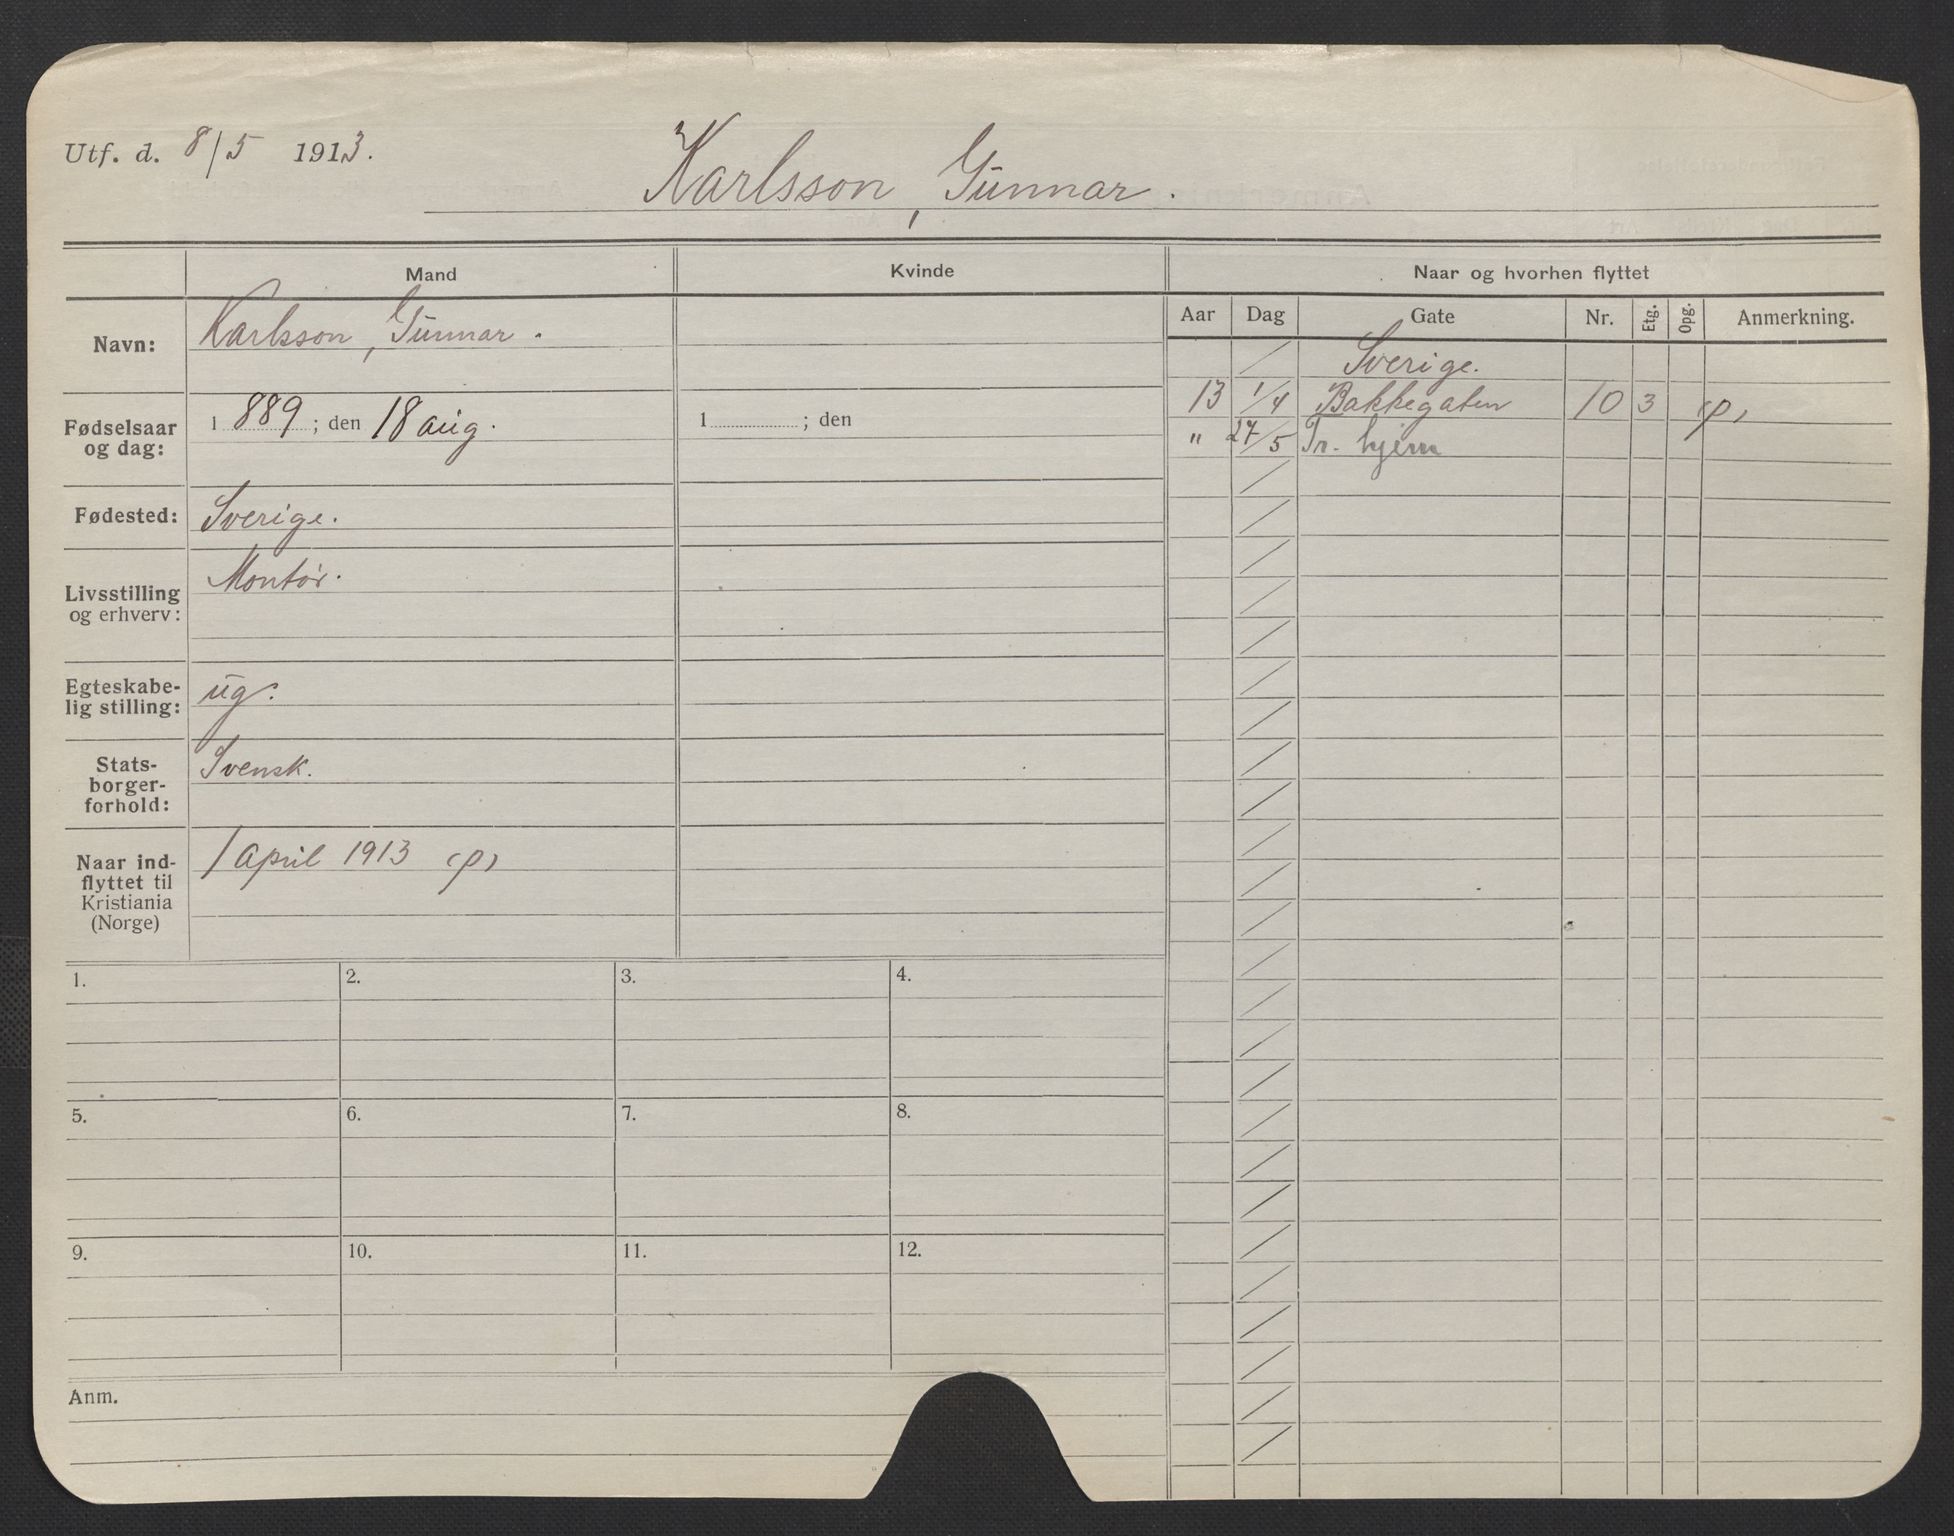 Utf. d. 8/5 1913.
Karlsson, Gunnar.
Mand Kvinde Naar og hvorhen flyttet
Aar Dag Gate Nr. Etg. Opg. Anmerkning.
Navn: Karlsson, Gunnar.
Fødselsaar og dag: 1889; den 18 aug. 1 ; den
Fødested: Sverige.
Livsstilling og erhverv: Montør.
Egteskabe-
lig stilling: ug.
Stats-
borger-
forhold: Svensk.
Naar ind-
flyttet til
Kristiania
(Norge) 1 April 1913 (p)
Sverige.
13 1/4 Bakkegaten 10 3 (p)
" 27/5 Tr. hjem
1. 2. 3. 4.
5. 6. 7. 8.
9. 10. 11. 12.
Anm.